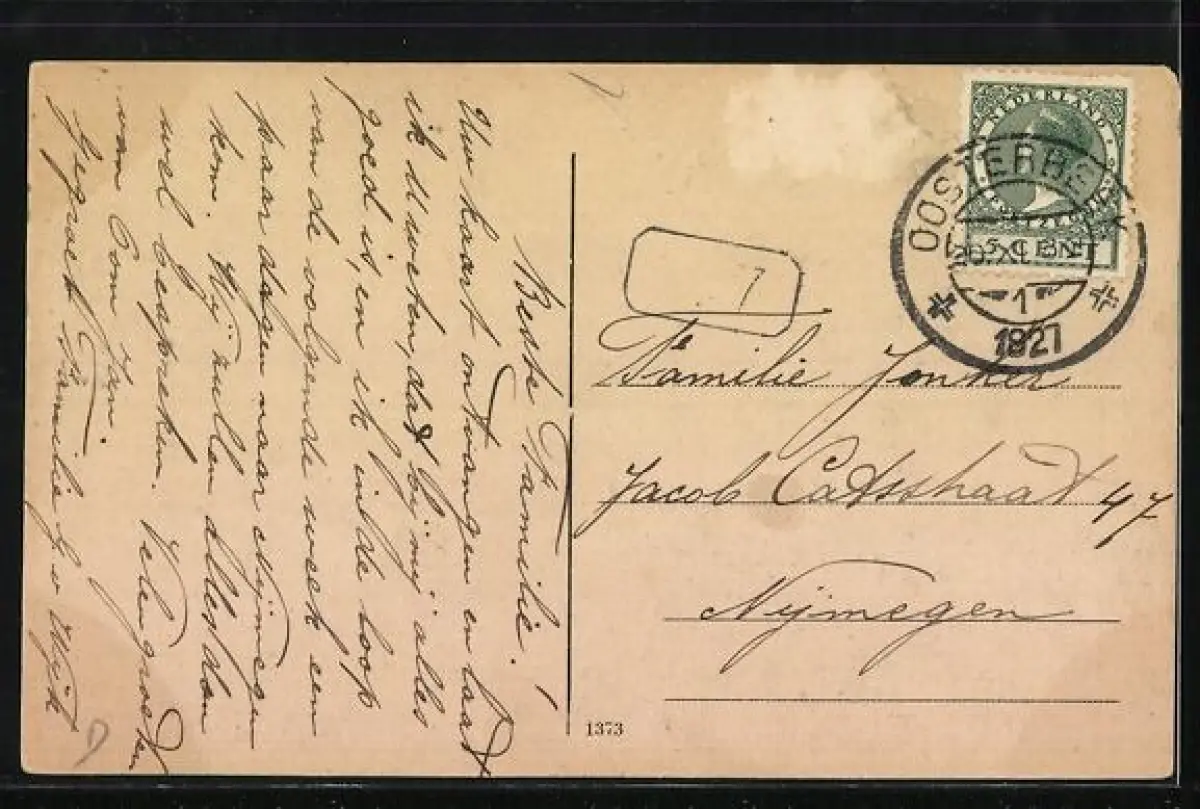 Beste Familie!
Uw kaart ontvangen en laat
ik U weten, dat bij mij alles
goed is, en ik in de loop
van de volgende week een
paar dagen naar Nijmegen
kom. Wij zullen alles dan
wel bespreken. Vele groeten
van Oom Jan.
Gegroet Familie
NEDERLAND
5 CENT
OOSTERBEEK
20.XI
1
1927
7
Familie Jonker
Jacob Catsstraat 47
Nijmegen
1373